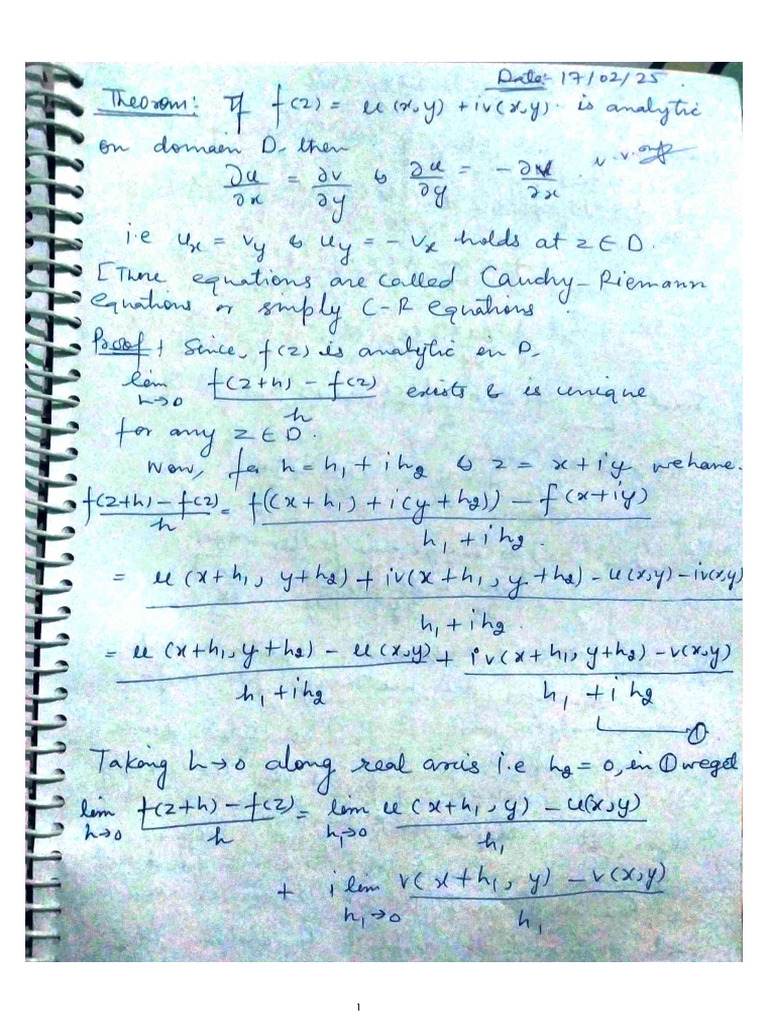 Date:- 17/02/25.
Theorem: If f(z) = u(x,y) + iv(x,y). is analytic
on domain D, then
∂u/∂x = ∂v/∂y & ∂u/∂y = -∂v/∂x. v.v.imp
i.e u_x = v_y & u_y = -v_x holds at z ∈ D.
[These equations are called Cauchy-Riemann
equations or simply C-R equations.
Proof: Since, f(z) is analytic in D,
lim h→0 (f(z+h) - f(z))/h exists & is unique
for any z ∈ D.
Now, for h = h₁ + ih₂ & z = x+iy we have.
(f(z+h) - f(z))/h = (f((x+h₁) + i(y+h₂)) - f(x+iy))/(h₁ + ih₂).
= (u(x+h₁, y+h₂) + iv(x+h₁, y+h₂) - u(x,y) - iv(x,y))/(h₁ + ih₂).
= (u(x+h₁, y+h₂) - u(x,y))/(h₁+ih₂) + (iv(x+h₁, y+h₂) - v(x,y))/(h₁ + ih₂)
①
Taking h→0 along real axis i.e h₂ = 0, in ① we get
lim h→0 (f(z+h) - f(z))/h = lim h₁→0 (u(x+h₁, y) - u(x,y))/h₁
+ i lim h₁→0 (v(x+h₁, y) - v(x,y))/h₁
1